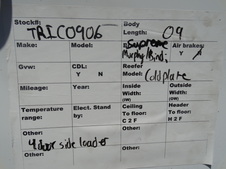 Stock#: TRICO906
Body Length: 09
Make:
Model:
Supreme
Murphy/Bindi
Air brakes:
Y
Gvw:
CDL:
Y N
Reefer Model:
Coldplate
Mileage:
Year:
Inside Width:
Outside (W)
Inside
Outside (W)
Temperature range:
Elect. Stand by:
Ceiling To floor:
C 2 F
Header To floor:
H 2 F
Other:
4 door side loader
Other:
Other: